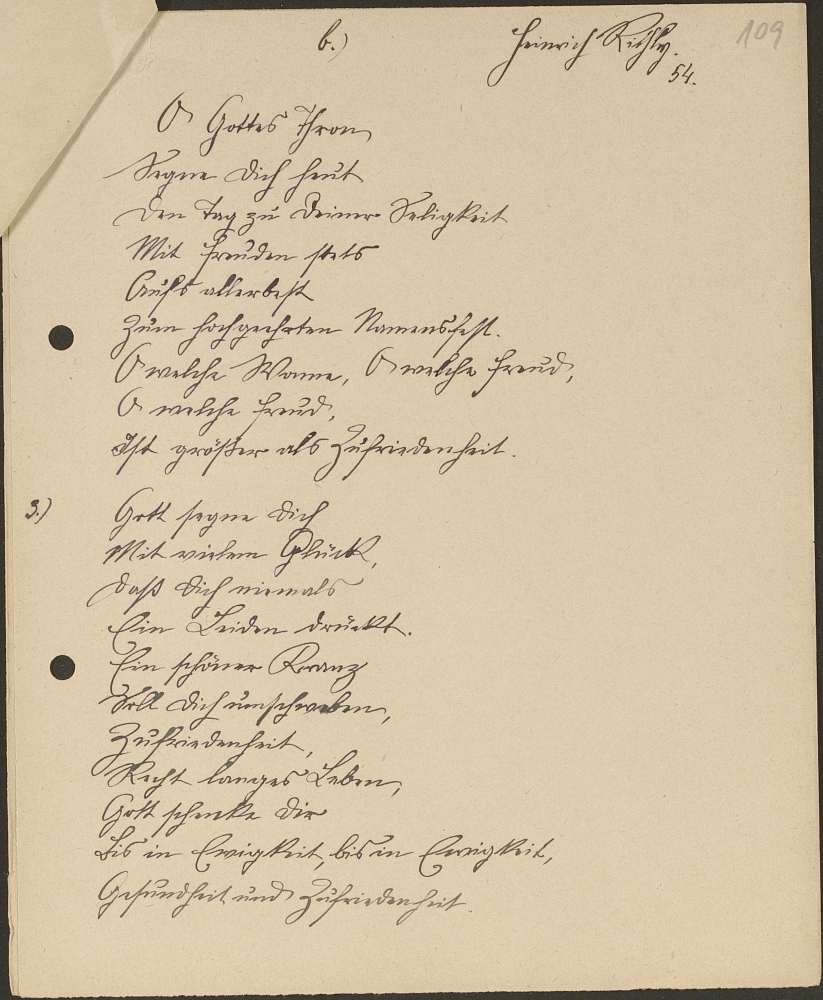 b.) Heinrich 109
54.
O Gottes Thron
Segne Dich heut
Den Tag zu Deiner Seligkeit
Mit Freuden stets
Aufs allerbest
Zum hochgeehrten Namensfest.
O welche Wonne, O welche Freud,
O welche Freud,
Ist größer als Zufriedenheit.
3.) Gott segne Dich
Mit vielem Glück,
Daß Dich niemals
Ein Leiden drückt.
Ein schöner Kranz
Soll Dich umschweben,
Zufriedenheit,
Recht langes Leben,
Gott schenke Dir
Bis in Ewigkeit, bis in Ewigkeit,
Gesundheit und Zufriedenheit.